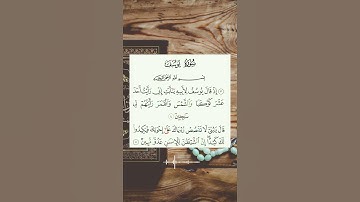 سورة يوسف
بسم الله الرحمن الرحيم
إذ قال يوسف لأبيه يا أبت إني رأيت أحد
عشر كوكبا والشمس والقمر رأيتهم لي
ساجدين
قال يا بني لا تقصص رؤياك على إخوتك فيكيدوا
لك كيدا إن الشيطان للإنسان عدو مبين